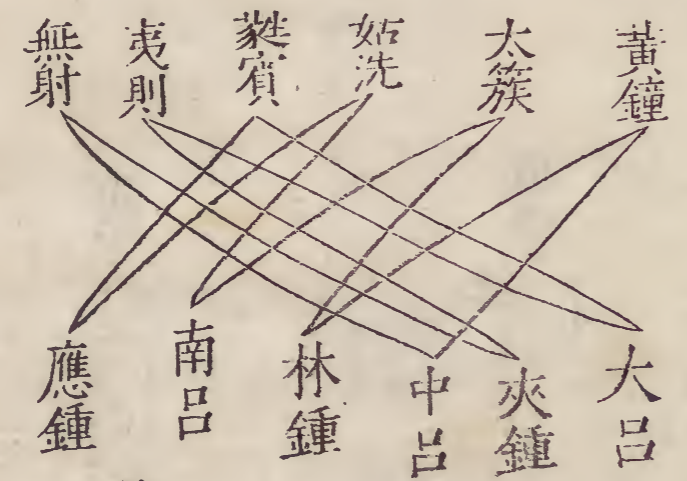 黃鐘
太簇
姑洗
蕤賓
夷則
無射
大呂
夾鍾
中呂
林鍾
南呂
應鍾